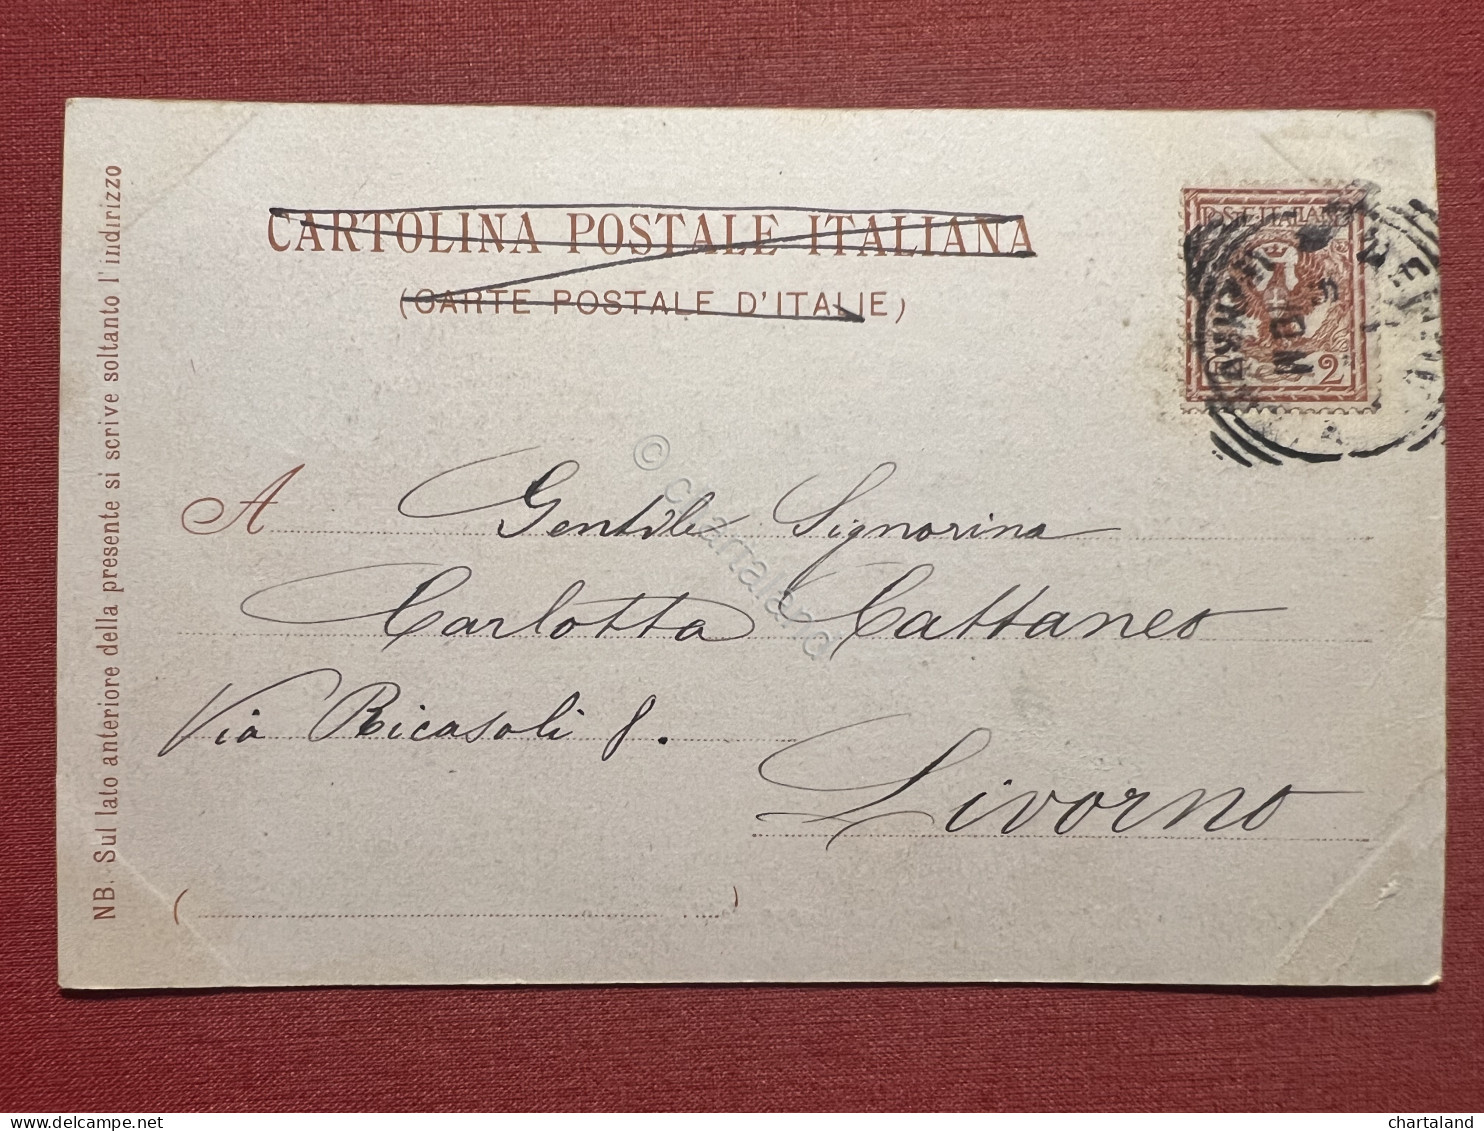 CARTOLINA POSTALE ITALIANA
(CARTE POSTALE D'ITALIE)
POSTE ITALIANE
2
NB. - Sul lato anteriore della presente si scrive soltanto l'indirizzo
© chartaland
A Gentile Signorina
Carlotta Cattaneo
Via Ricasoli 8.
Livorno
delcampe.net
chartaland